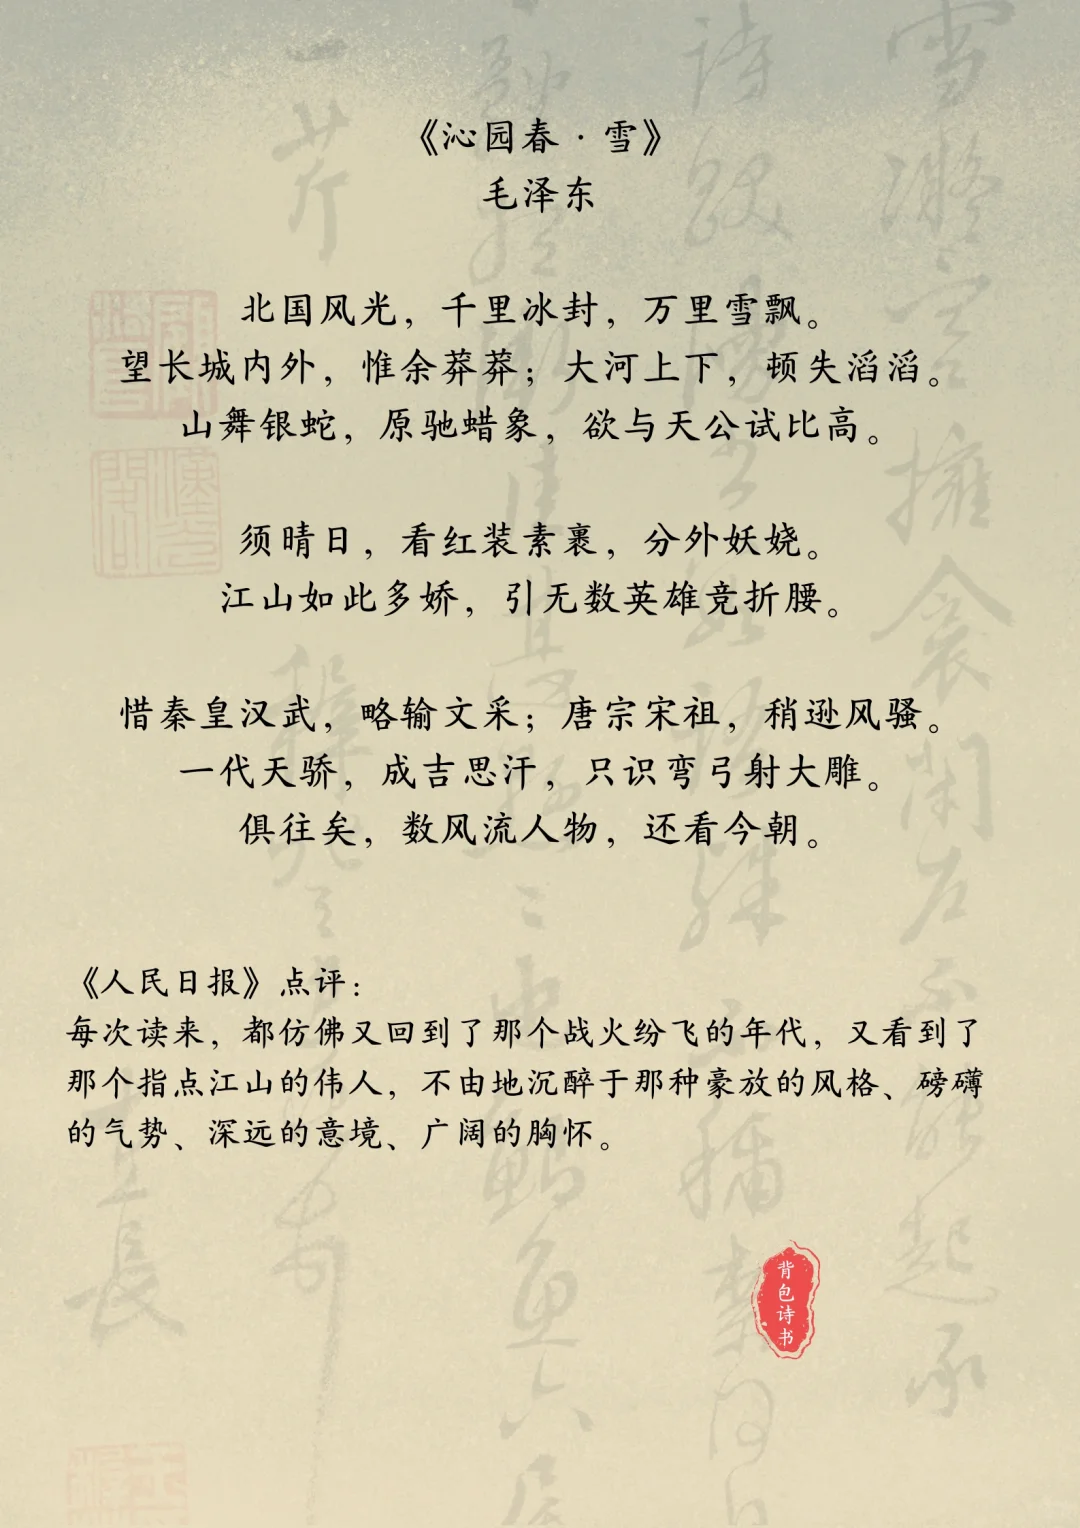 《沁园春·雪》
毛泽东
北国风光，千里冰封，万里雪飘。
望长城内外，惟余莽莽；大河上下，顿失滔滔。
山舞银蛇，原驰蜡象，欲与天公试比高。
须晴日，看红装素裹，分外妖娆。
江山如此多娇，引无数英雄竞折腰。
惜秦皇汉武，略输文采；唐宗宋祖，稍逊风骚。
一代天骄，成吉思汗，只识弯弓射大雕。
俱往矣，数风流人物，还看今朝。
《人民日报》点评：
每次读来，都仿佛又回到了那个战火纷飞的年代，又看到了
那个指点江山的伟人，不由地沉醉于那种豪放的风格、磅礴
的气势、深远的意境、广阔的胸怀。
背包诗书